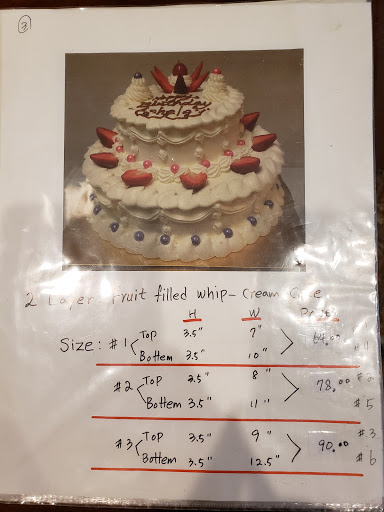 3
Happy
Birthday
2 Layer Fruit filled whip-cream Cake
H W Price
Size: #1 Top 3.5" 7" 64.00
Bottem 3.5" 10" #1
#2 Top 3.5" 8" 78.00 #2
Bottem 3.5" 11" #5
#3 Top 3.5" 9" 90.00 #3
Bottem 3.5" 12.5" #6